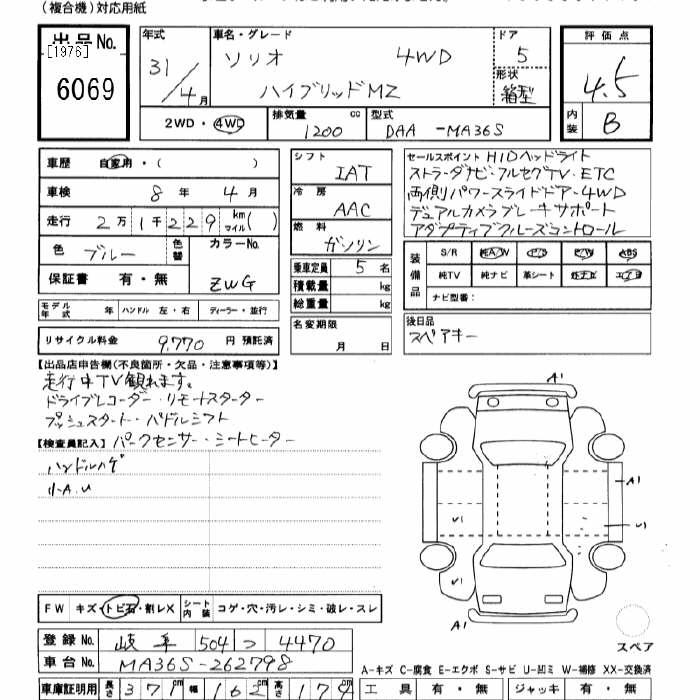 (複合機)対応用紙
出品No. 年式 車名・グレード ドア 評価点
[1976]
6069
31/4月 ソリオ 4WD 5
形状
ハイブリッドMZ 箱型 4.5
2WD・4WD 排気量 cc 型式 内装
1200 DAA -MA36S B
車歴 自家用・( )
車検 8年 4月
走行 2万1千229 km マイル( )
色 ブルー 色替 カラーNo.
保証書 有・無 ZWG
モデル年式 年 ハンドル 左・右 ディーラー・並行
リサイクル料金 9,770 円 預託済
シフト IAT
冷房 AAC
燃料 ガソリン
乗車定員 5 名
積載量 kg
総重量 kg
名変期限
月 日
セールスポイント HIDヘッドライト
ストラーダナビ・フルセグTV・ETC
両側パワースライドドア・4WD
デュアルカメラブレーキサポート
アダプティブクルーズコントロール
装備品 S/R 純A/W P/S P/W ABS
純TV 純ナビ 革シート 社ナビ エアB
ナビ型番:
後日品
スペアキー
【出品店申告欄(不良箇所・欠品・注意事項等)】
走行中TV観れます。
ドライブレコーダー・リモートスターター
プッシュスタート・パドルシフト
【検査員記入】パークセンサー・シートヒーター
ハンドルハゲ
小A.U
A1
A1
U1
U1
A1
スペア
FW キズ・トビ石・割レX シート内装 コゲ・穴・汚レ・シミ・破レ・スレ
登録No. 岐阜 504 つ 4470
車台No. MA36S-262798
A-キズ C-腐食 E-エクボ S-サビ U-凹ミ W-補修 XX-交換済
車庫証明用 長さ 371 cm 幅 162 cm 高さ 174 cm
工具 有・無 ジャッキ 有・無